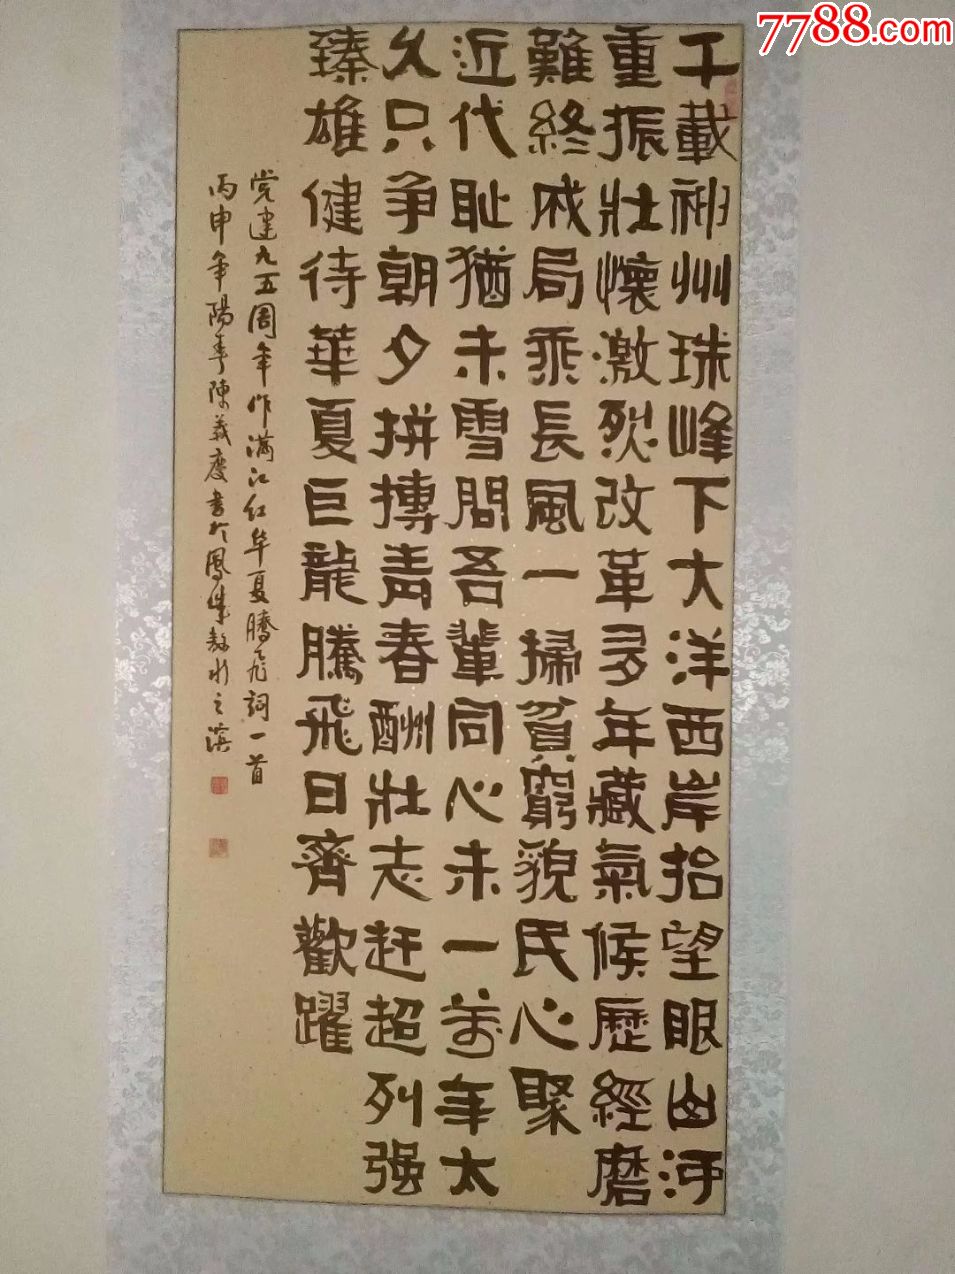 7788.com
千載神州珠峰下大洋西岸抬望眼山河
重振壯懷激烈改革多年藏氣候歷經磨
難終成局乘長風一掃貧窮貌民心聚
近代恥猶未雪問吾輩同心未一萬年太
久只争朝夕拼搏青春酬壯志赶超列强
臻雄健待華夏巨龍騰飛日齊歡躍
党建九五周年作满江红华夏腾飞詞一首
丙申年陽春陳義慶書於鳳城水之濱